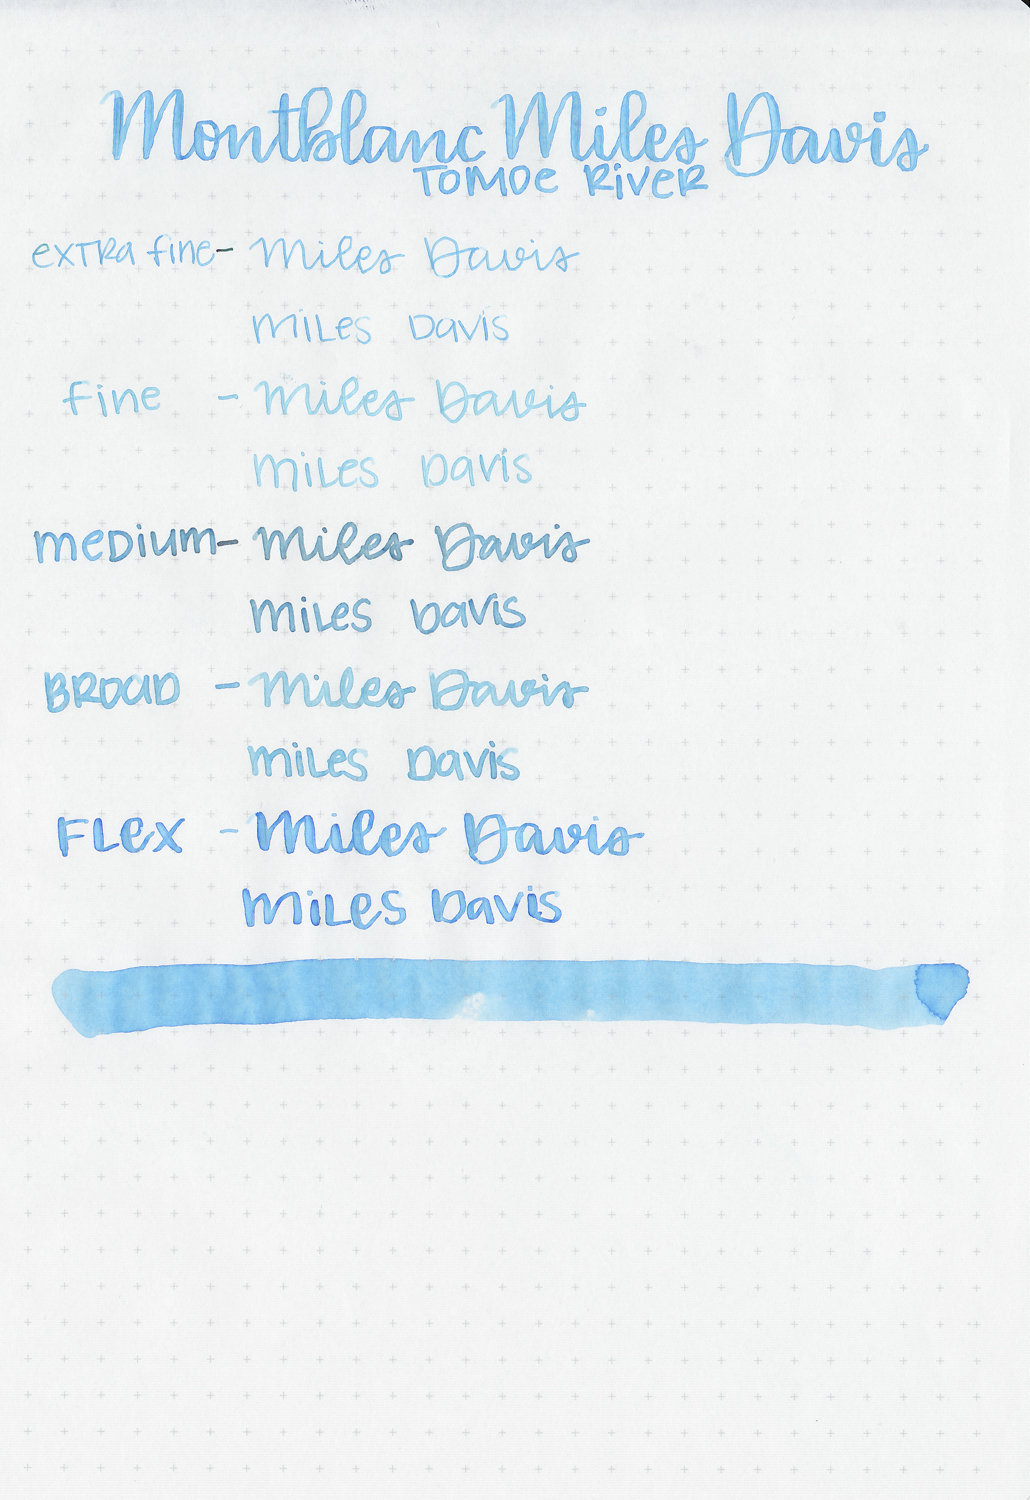 Montblanc Miles Davis
TOMOE RIVER
extra fine - Miles Davis
Miles Davis
Fine - Miles Davis
Miles Davis
Medium - Miles Davis
Miles Davis
BROAD - Miles Davis
Miles Davis
FLex - Miles Davis
MiLes Davis